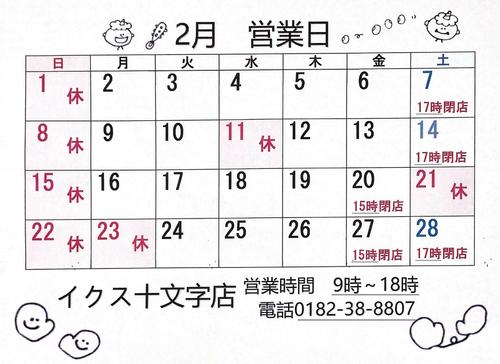 2月 営業日
日 月 火 水 木 金 土
1 休 2 3 4 5 6 7
17時閉店
8 休 9 10 11 休 12 13 14
17時閉店
15 休 16 17 18 19 20 21 休
15時閉店
22 休 23 休 24 25 26 27 28
15時閉店 17時閉店
イクス十文字店
営業時間 9時～18時
電話0182-38-8807